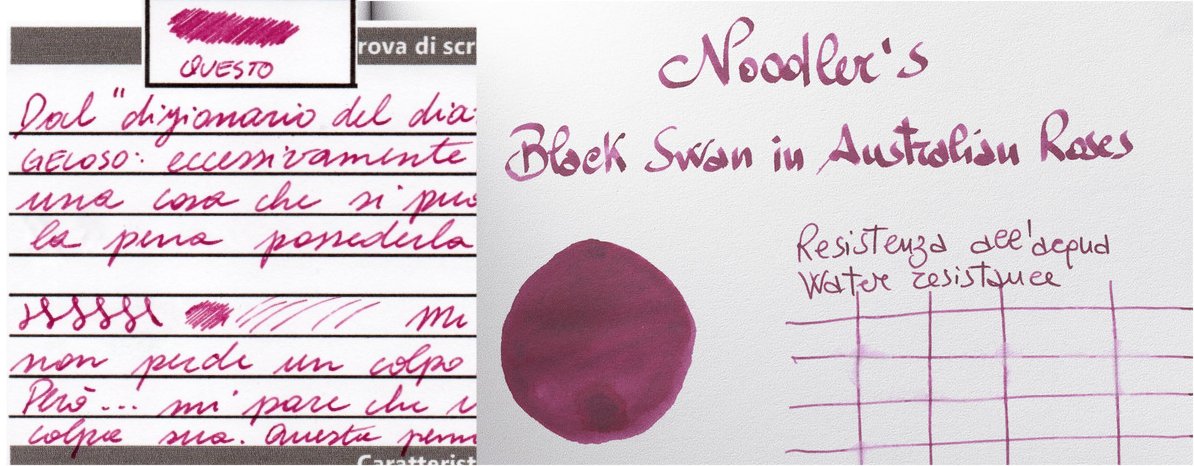 rova di scr
QUESTO
Dal "dizionario del dia
GELOSO: eccessivamente
una cosa che si può
la pena possederla
mi
non perde un colpo
Però... mi pare che
colpa sua. Questa penn
Caratterist
Noodler's
Black Swan in Australian Roses
Resistenza all'acqua
Water resistance